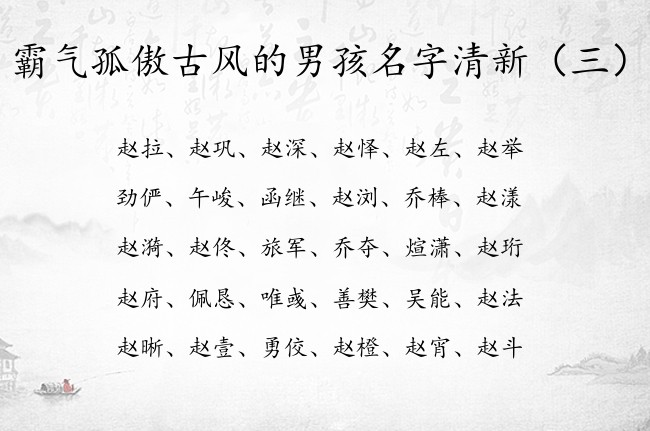 霸气孤傲古风的男孩名字清新（三）
赵拉、赵巩、赵深、赵怿、赵左、赵举
劲俨、午峻、函继、赵浏、乔棒、赵漾
赵漪、赵佟、旅军、乔夺、煊潇、赵珩
赵府、佩恳、唯彧、善樊、吴能、赵法
赵晰、赵壹、勇佼、赵橙、赵宵、赵斗